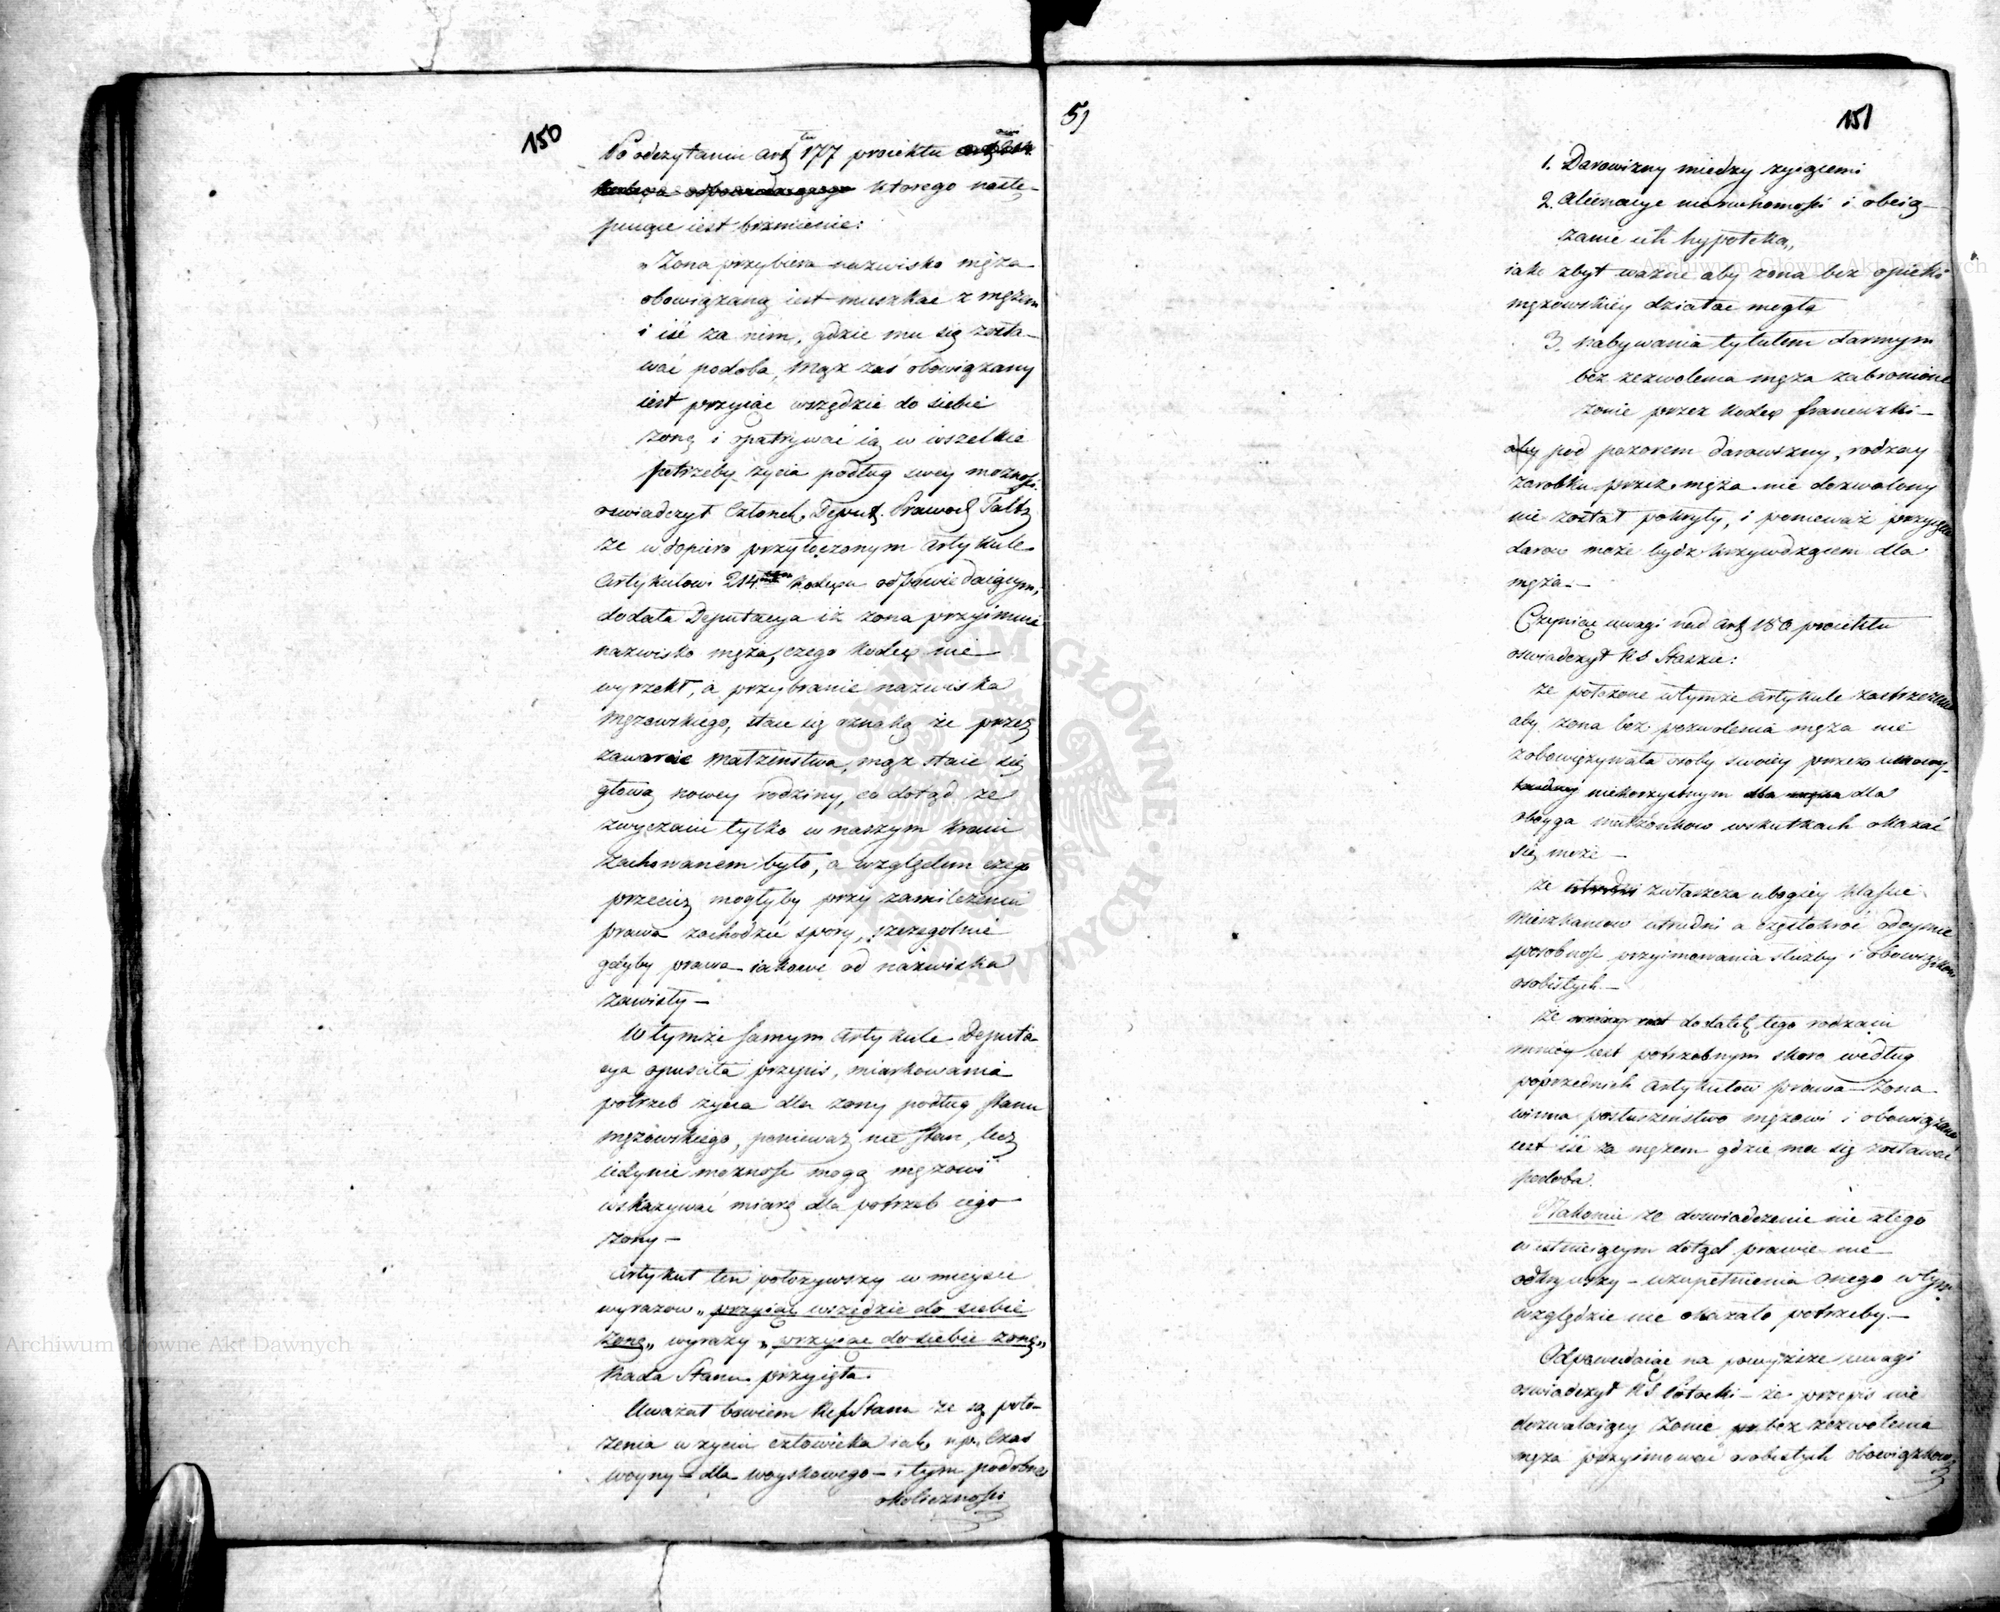 150
Po odczytaniu art 177 proiektu
ktorego nastę-
puiące iest brzmienie:
„Zona przybiera nazwisko męża
obowiązaną iest mieszkać z mężem
i iść za nim, gdzie mu się zosta-
wać podoba, Mąż zaś obowiązany
iest przyiąć wszędzie do siebie
żonę i opatrywać ią w wszelkie
potrzeby życia podług swey możności.
oswiadczył Członek Deput. Prawod.
że w dopiero przytoczonym artykule
artykułowi 214 kodexu odpowiedaiącym,
dodała Deputacya iż żona przyimuie
nazwisko męża, czego kodex nie
wyrzekł, a przybranie nazwiska
mężowskiego, staie się oznaką że przez
zawarcie małżeństwa, mąż staie się
głową nowey rodziny, co dotąd ze
zwyczaiu tylko w naszym kraiu
zachowanem było, a względem czego
przecież mogłyby przy zamilczeniu
prawa zachodzić spory, szczegolnie
gdyby prawa iakowe od nazwiska
zawisły –
W tymże samym artykule Deputa-
cya opuściła przepis, miarkowania
potrzeb życia dla żony podług stanu
mężowskiego, ponieważ nie stan, lecz
iedynie możność mogą mężowi
wskazywać miarę dla potrzeb iego
żony –
Artykuł ten położywszy w mieysce
wyrazow „przyiąć wszędzie do siebie
żonę„ wyrazy „przyiąć do siebie żonę„
Rada Stanu przyięła.
Uważał bowiem Ref Stanu że są poło-
żenia w życiu człowieka iak np. Czas
woyny – dla woyskowego – i tym podobne
okoliczności
51
151
1. Darowizny między żyiącemi
2. Alienacye nieruchomości i obcią-
żanie ich hypoteką„
iako zbyt ważne aby żona bez opieki
mężowskiey działać mogła
3. Nabywania tytułem darmym
bez zezwolenia męża zabronione
żonie przez kodex francuzki –
aby pod pozorem darowizny, rodzay
zarobku przez męża nie dozwolony
nie został pokryty, i ponieważ przyięcie
darow może bydź krzywdzącem dla
męża –
Czyniąc uwagi nad art 180 proiektu
oswiadczył RS Staszic:
że położone w tymże artykule zastrzeżenie
aby żona bez pozwolenia męża nie
zobowięzywała osoby swoiey przez umowy
niekorzystnym dla
oboyga małżonkow w skutkach okazać
się może –
że zwłaszcza ubogiey klassie
mieszkancow utrudni a częstokroć odeymie
sposobność przyimowania służby i obowiązkow
osobistych –
że dodatek tego rodzaiu
mniey iest potrzebnym skoro według
poprzednich artykułow prawa żona
winna posłuszeństwo mężowi i obowiązana
iest iść za mężem gdzie mu się zostawać
podoba.
Nakoniec że doswiadczenie nic złego
w istnieiącym dotąd prawie nie
odkrywszy – uzupełnienia onego w tym
względzie nie okazało potrzeby –
Odpowiedaiąc na powyższe uwagi
oswiadczył RS Potocki – że przepis nie
dozwalaiący żonie bez zezwolenia
męża przyimować osobistych obowiązkow,
Archiwum Główne Akt Dawnych
Archiwum Główne Akt Dawnych
ARCHIWUM GŁÓWNE AKT DAWNYCH